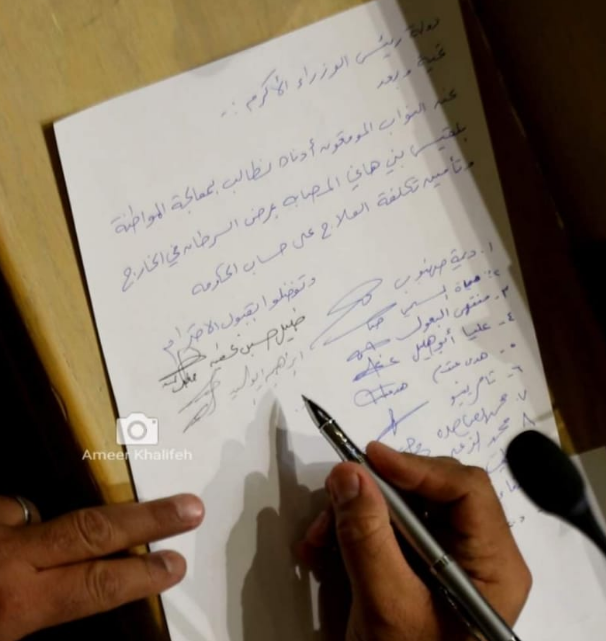 دولة رئيس الوزراء الأكرم ..
تحية وبعد
نحن النواب الموقعون أدناه نطالب بمعالجة المواطنة
بلقيس بني هاني المصابة بمرض السرطان في الخارج
وتأمين تكلفة العلاج على حساب الحكومة
وتفضلوا بقبول الاحترام
١. ديمة طهبوب
٢. حياة المسيمي
٣. منتهى البعول
٤. عليا أبو هليل
٥. هدى
٦. تامر بينو
٧.
٨. محمد
خليل حسين عطية
Ameer Khalifeh